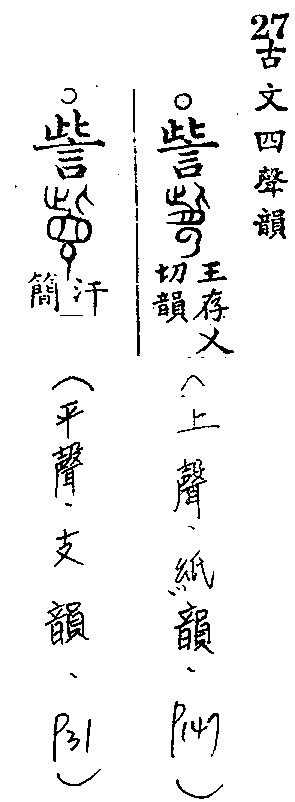 27古文四聲韻
○訾
王存乂切韻
(上聲、紙韻、P147)
○訾
汗簡
(平聲、支韻、P31)